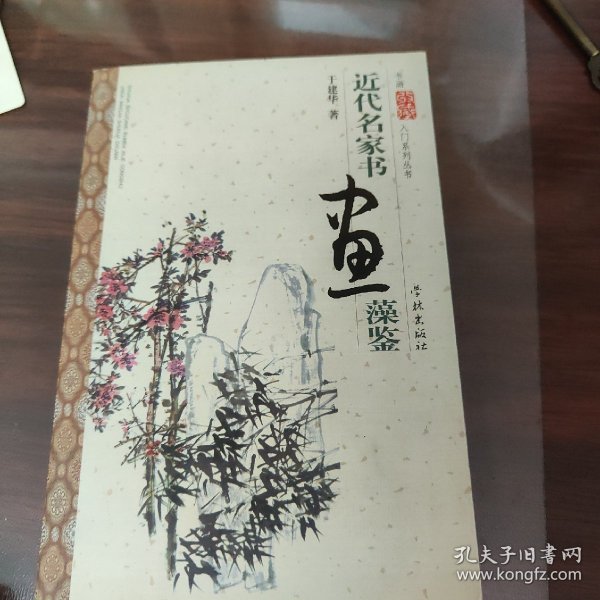 收藏入门系列丛书
近代名家书画藻鉴
于建华 著
学林出版社
孔夫子旧书网
www.kongfz.com